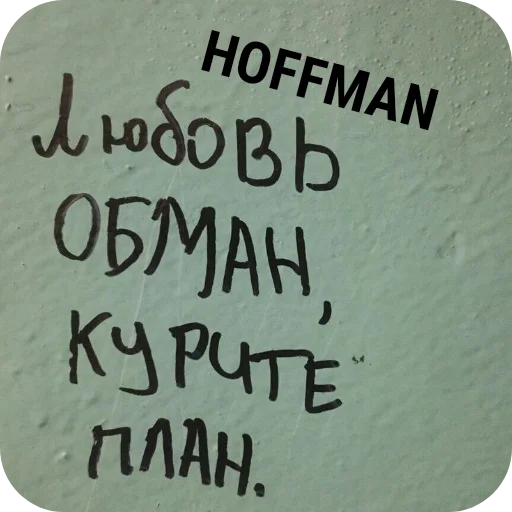 HOFFMAN
Любовь
ОБМАН,
КУРИТЕ
ПЛАН.